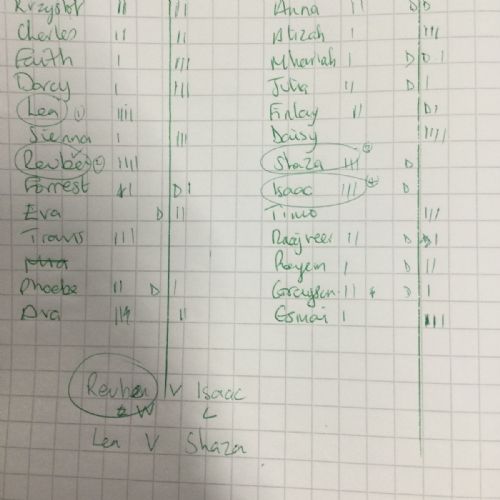 Krzysztof || ||| Anna || D D
Charles || || Atizah | |||
Faith | ||| Mhariah | D D |
Darcy | ||| Julia || D |
Len ① |||| Finlay || D |
Sienna | ||| Daisy ||||
Reuben ② |||| Shaza ||| ③ D
Forrest || D | Isaac ||| ④ D
Eva D || Timo |||
Travis ||| Raajveer || D D |
Phoebe || D | Rayem | D ||
Ava |||| || Grayson || D |
Esmai | |||
Reuben V Isaac
W L
Len V Shaza